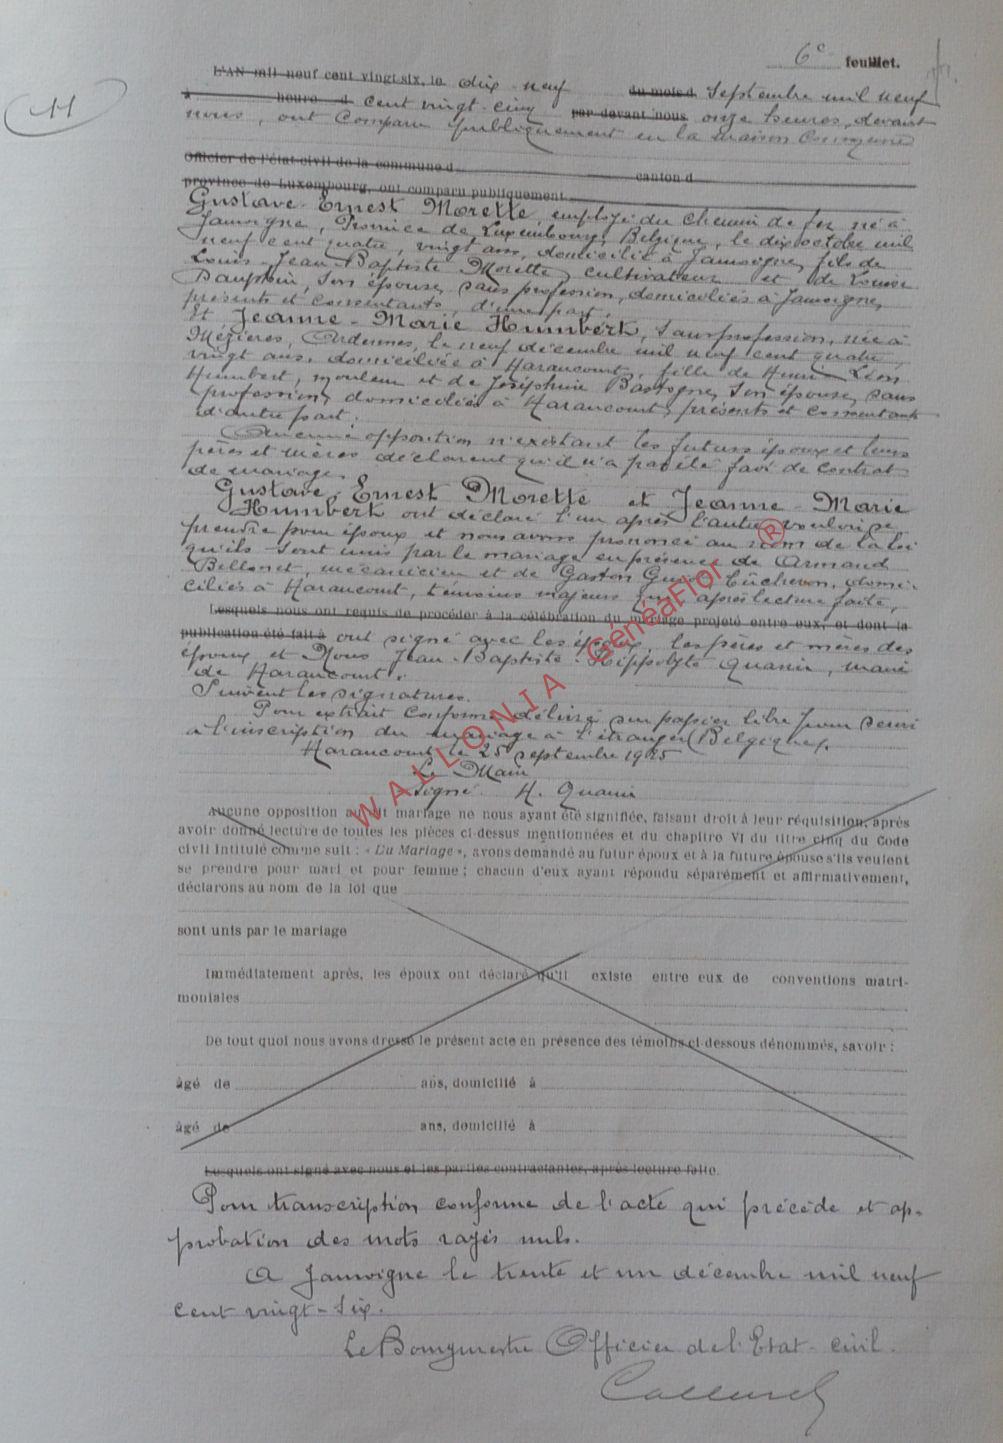 6e feuillet.
11
L'AN mil neuf cent vingt-six, le dix neuf du mois d septembre mil neuf
à heure d cent vingt-cinq par devant nous onze heures, devant
nous, ont comparu publiquement en la maison commune
Officier de l'état civil de la commune d canton d
province de Luxembourg, ont comparu publiquement
Gustave-Ernest Morette employé du chemin de fer né à
Jamoigne, Province de Luxembourg, Belgique, le dix octobre mil
neuf cent quatre, vingt ans, domicilié à Jamoigne, fils de
Louis-Jean-Baptiste Morette, cultivateur et de Louise
Dauphin, son épouse, sans profession, domiciliés à Jamoigne,
présents et consentants, d'une part,
Et Jeanne-Marie Humbert, sans profession, née à
Mézières, Ardennes, le neuf décembre mil neuf cent quatre
vingt ans, domiciliée à Haraucourt, fille de Henri Léon
Humbert, mouleur et de Joséphine Bastogne, son épouse, sans
profession, domiciliés à Haraucourt, présents et consentants
d'autre part.
Aucune opposition n'existant les futurs époux et leurs
pères et mères déclarent qu'il n'a pas été fait de contrat
de mariage.
Gustave-Ernest Morette et Jeanne-Marie
Humbert ont déclaré l'un après l'autre vouloir se
prendre pour époux et nous avons prononcé au nom de la loi
qu'ils sont unis par le mariage en présence de Armand
mécanicien et de Gaston domi-
ciliés à Haraucourt, témoins majeurs qui, après lecture faite,
Lesquels nous ont requis de procéder à la célébration du mariage projeté entre eux, et dont la
publication été fait à ont signé avec les époux, les pères et mères des
époux et Nous Jean-Baptiste-Hippolyte Quanin, maire
de Haraucourt.
Suivent les signatures.
Pour extrait conforme délivré sur papier libre pour servir
à l'inscription du mariage à l'étranger (Belgique).
Haraucourt, le 25 septembre 1925
Le Maire
signé H. Quanin
Aucune opposition audit mariage ne nous ayant été signifiée, faisant droit à leur réquisition, après
avoir donné lecture de toutes les pièces ci-dessus mentionnées et du chapitre VI du titre cinq du Code
civil intitulé comme suit : « Du Mariage », avons demandé au futur époux et à la future épouse s'ils veulent
se prendre pour mari et pour femme ; chacun d'eux ayant répondu séparément et affirmativement,
déclarons au nom de la loi que
sont unis par le mariage
Immédiatement après, les époux ont déclaré qu'il existe entre eux de conventions matri-
moniales
De tout quoi nous avons dressé le présent acte en présence des témoins ci-dessous dénommés, savoir :
âgé de ans, domicilié à
âgé de ans, domicilié à
Lesquels ont signé avec nous et les parties contractantes, après lecture faite.
Pour transcription conforme de l'acte qui précède et ap-
probation des mots rayés nuls.
A Jamoigne le trente et un décembre mil neuf
cent vingt-six.
Le Bourgmestre Officier de l'Etat-civil.
WALLONIA GénéaFlor ®